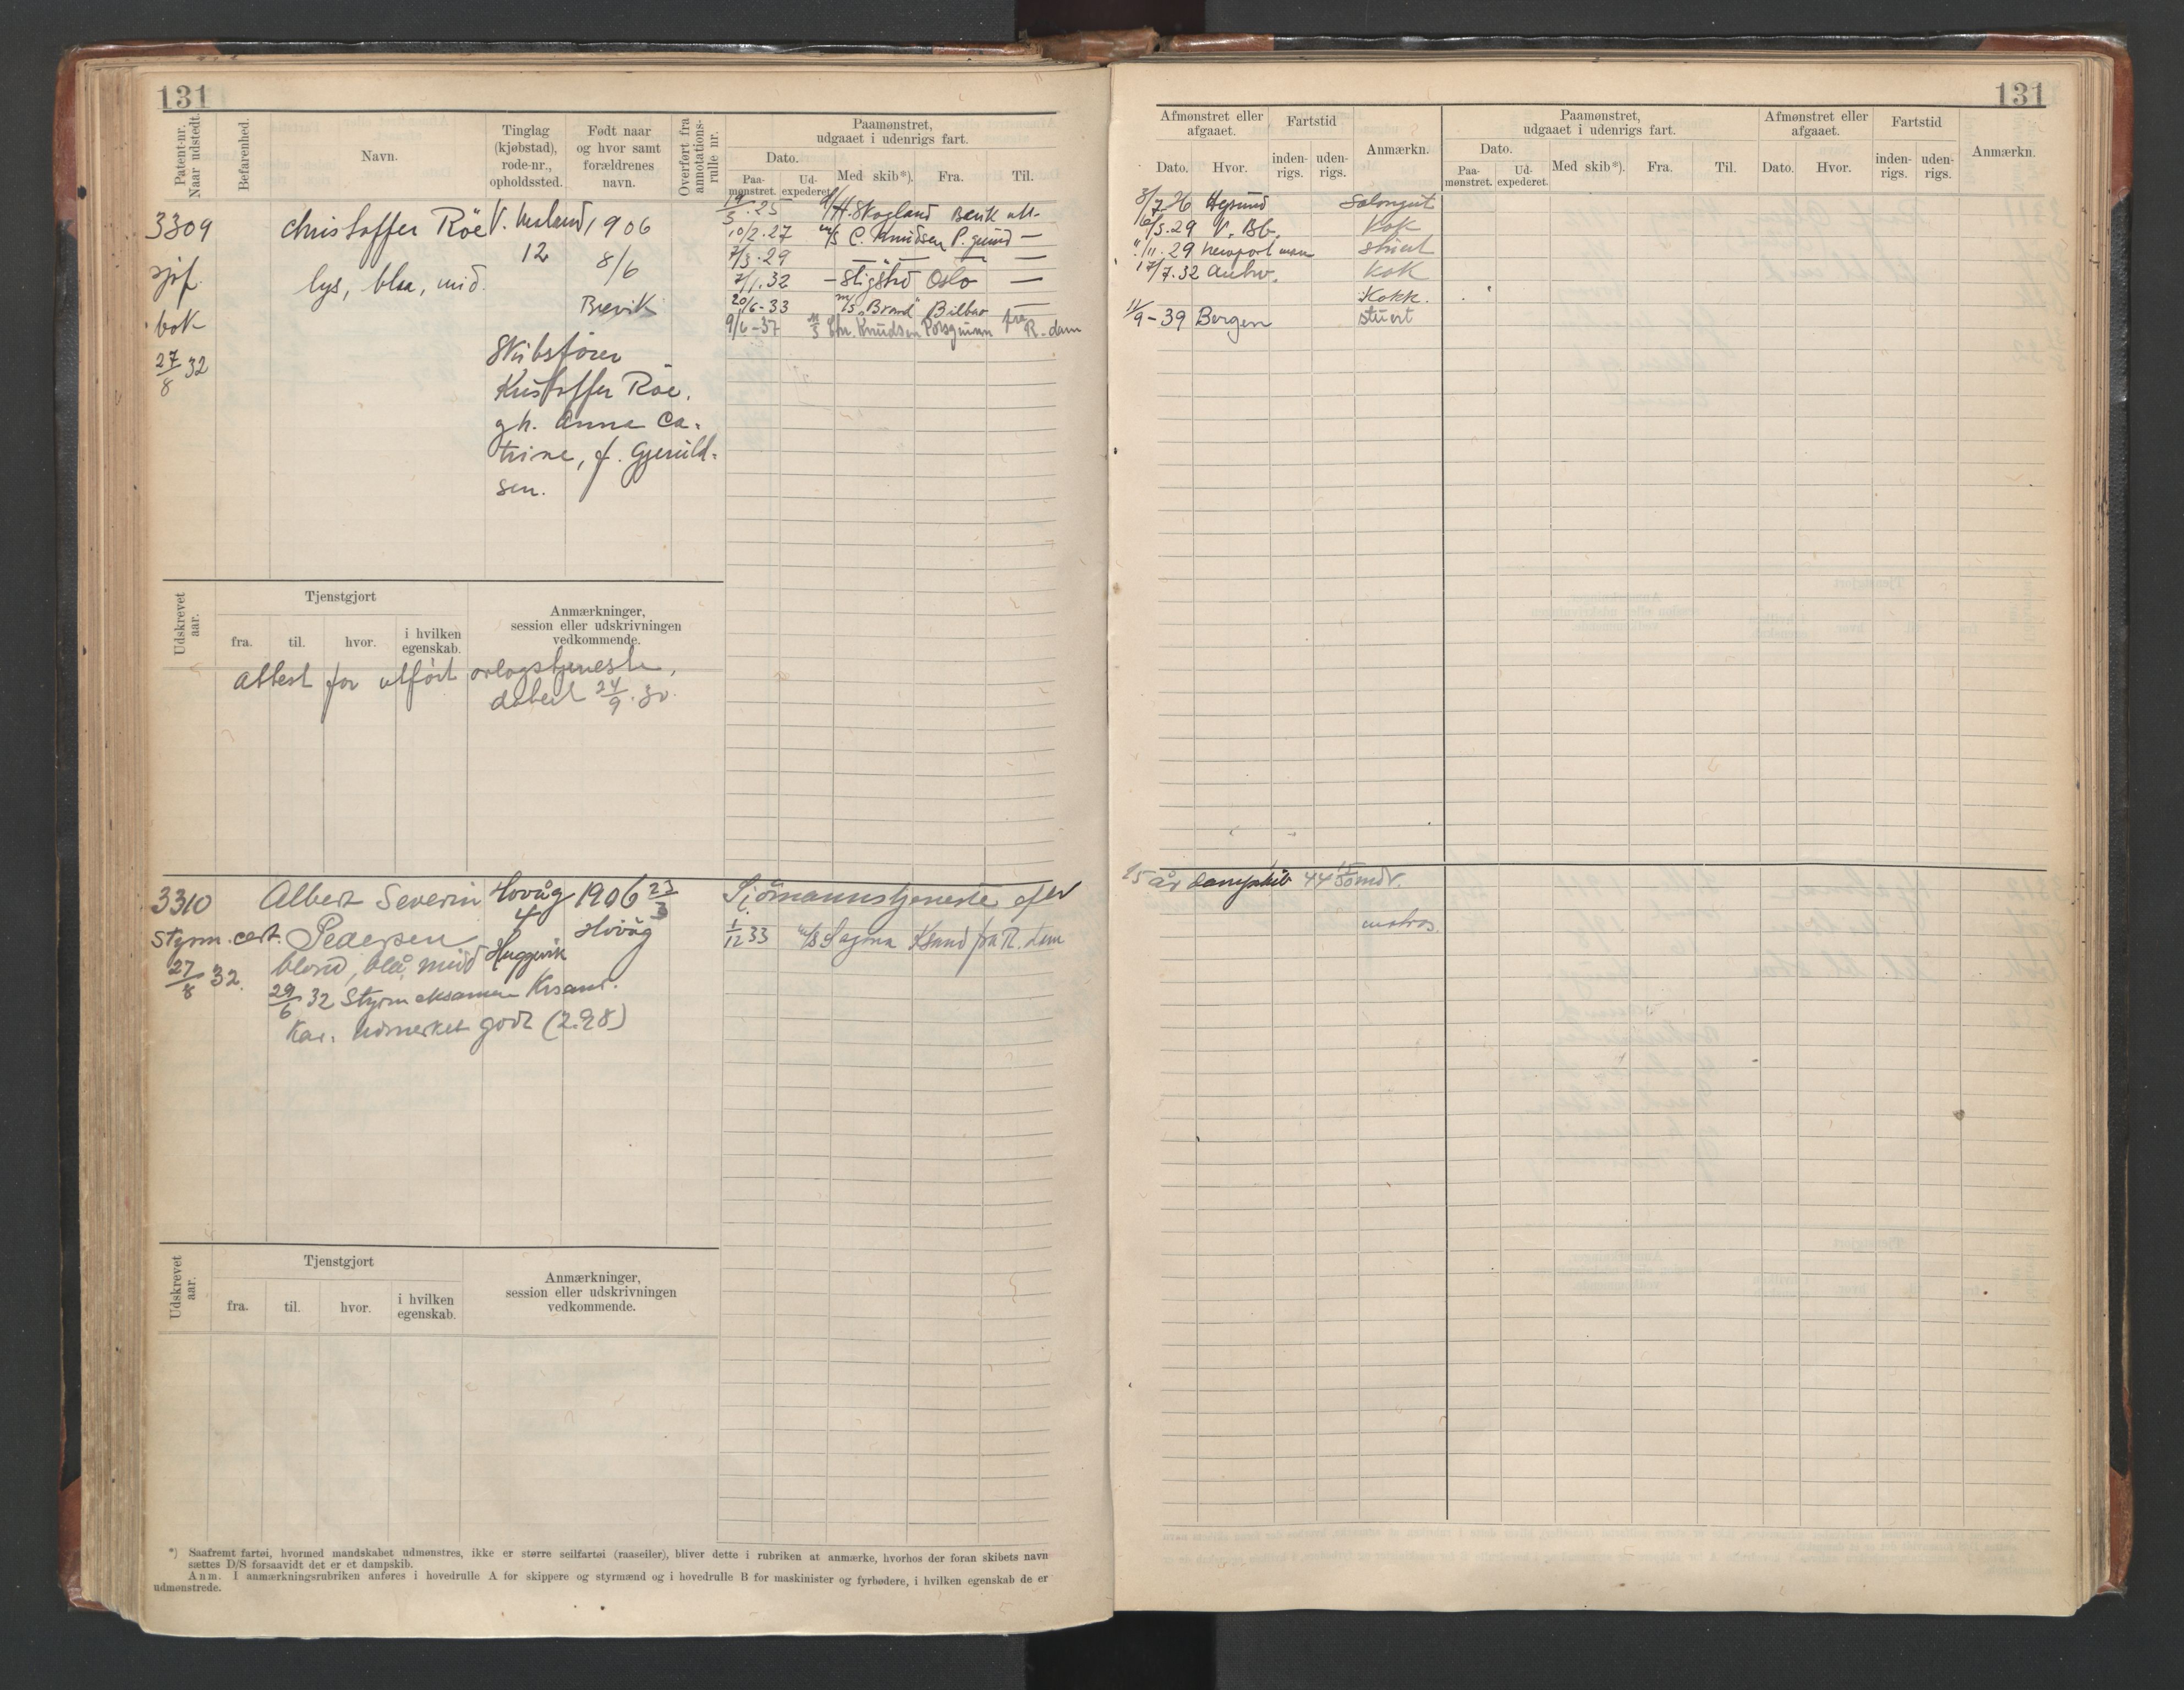 131
Patent-nr. Naar udstedt.
Befarenhed.
Navn.
Tinglag (kjøbstad), rode-nr., opholdssted.
Født naar og hvor samt forældrenes navn.
Overført fra annotations-rulle nr.
Paamønstret, udgaaet i udenrigs fart.
Dato.
Paa-mønstret.
Ud-expederet.
Med skib*).
Fra.
Til.
3309
Christoffer Röe
1906
12
8/6
lys, blaa, mid.
Brevik
bok
27/8 32
Skibsfører
Kristoffer Röe.
gh. Anna Ca-
trine, f. Gjeruld-
sen.
H. Skogland
10/2.27 m/s C. Knudsen P. grund —
7/3.29 — " — — —
7/1.32 — Stigstad Oslo —
20/6-33 m/s "Brand" Bilbao —
9/6-37 m/s Chr. Knudsen Porsgrunn fra R-dam
Udskrevet aar.
Tjenstgjort
fra.
til.
hvor.
i hvilken egenskab.
Anmærkninger, session eller udskrivningen vedkommende.
Attest for utført orlogstjeneste,
datert 24/9.30.
3310
Albert Severin
Hovåg
1906 23/3
Styrm. cert.
Pedersen
4
Hovåg
27/8 32.
blond, blå, midd
29/6 32 Styrm eksamen Krsand.
Kar. Udmerket godt (2.98)
Sjømannstjeneste efter
1/12 33 m/s Sagoma Ksand fra R. dam
Udskrevet aar.
Tjenstgjort
fra.
til.
hvor.
i hvilken egenskab.
Anmærkninger, session eller udskrivningen vedkommende.
*) Saafremt fartøi, hvormed mandskabet udmønstres, ikke er større seilfartøi (raaseiler), bliver dette i rubriken at anmærke, hvorhos der foran skibets navn
sættes D/S forsaavidt det er et dampskib.
Anm. I anmærkningsrubriken anføres i hovedrulle A for skippere og styrmænd og i hovedrulle B for maskinister og fyrbødere, i hvilken egenskab de er
udmønstrede.
131
Afmønstret eller afgaaet.
Dato.
Hvor.
Fartstid
inden-rigs.
uden-rigs.
Anmærkn.
Paamønstret, udgaaet i udenrigs fart.
Dato.
Paa-mønstret.
Ud-expederet.
Med skib*).
Fra.
Til.
Afmønstret eller afgaaet.
Dato.
Hvor.
Fartstid
inden-rigs.
uden-rigs.
Anmærkn.
3/7.26 Salongut
V. Bb. Kok
11.29 Newport stuert
17/7.32 Antw. Kok
Kokk.
11/9-39 Bergen stuert
år dampskib 44
matros.